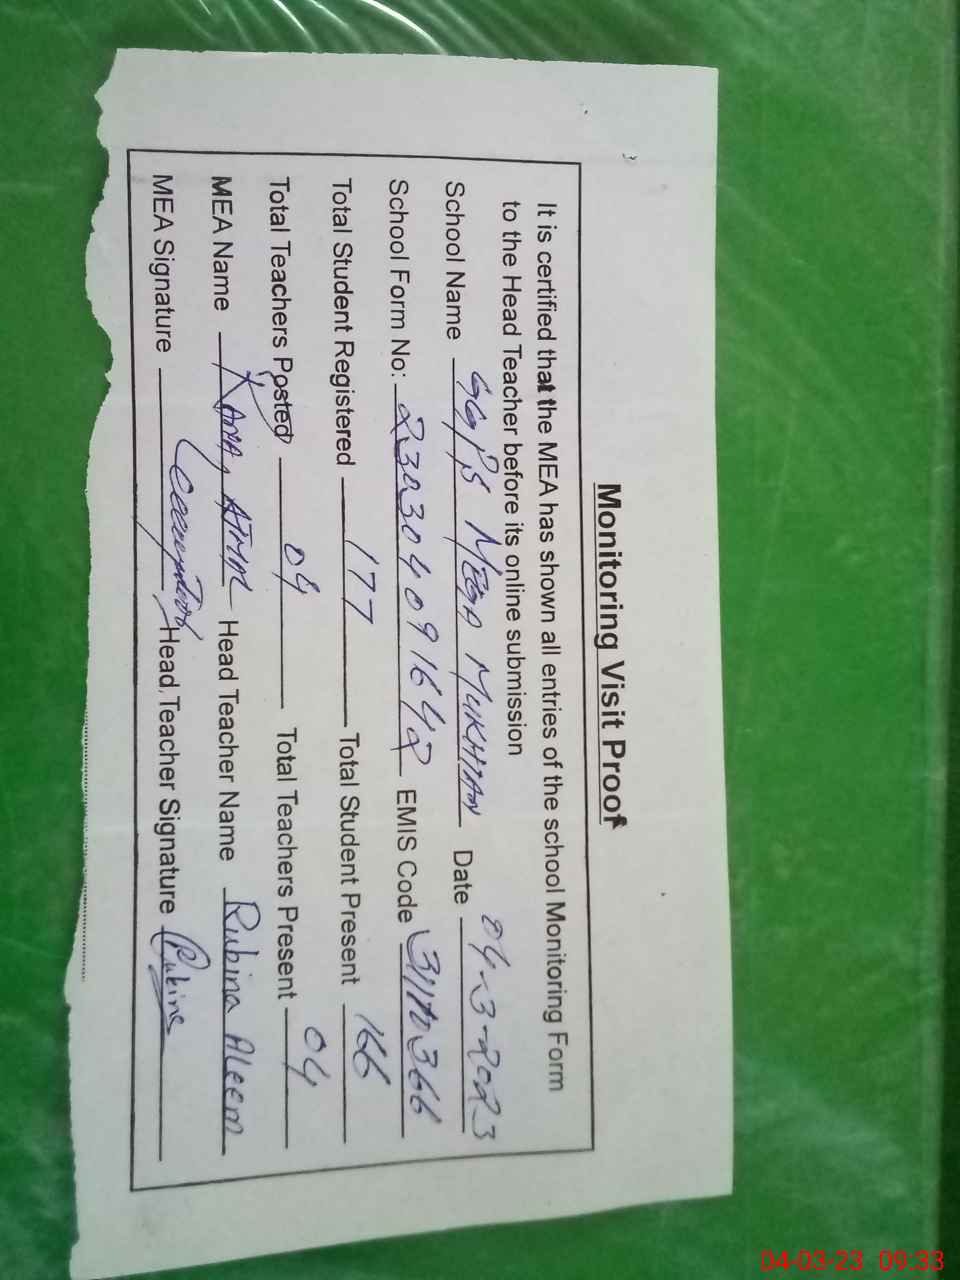 Monitoring Visit Proof
It is certified that the MEA has shown all entries of the school Monitoring Form
to the Head Teacher before its online submission
School Name GGPS MEGA MUKHTAN Date 04-3-2023
School Form No: 230304091642 EMIS Code 31110366
Total Student Registered 177 Total Student Present 166
Total Teachers Posted 04 Total Teachers Present 04
MEA Name Head Teacher Name Rubina Aleem
MEA Signature Head Teacher Signature Rubina
04-03-23 09:33